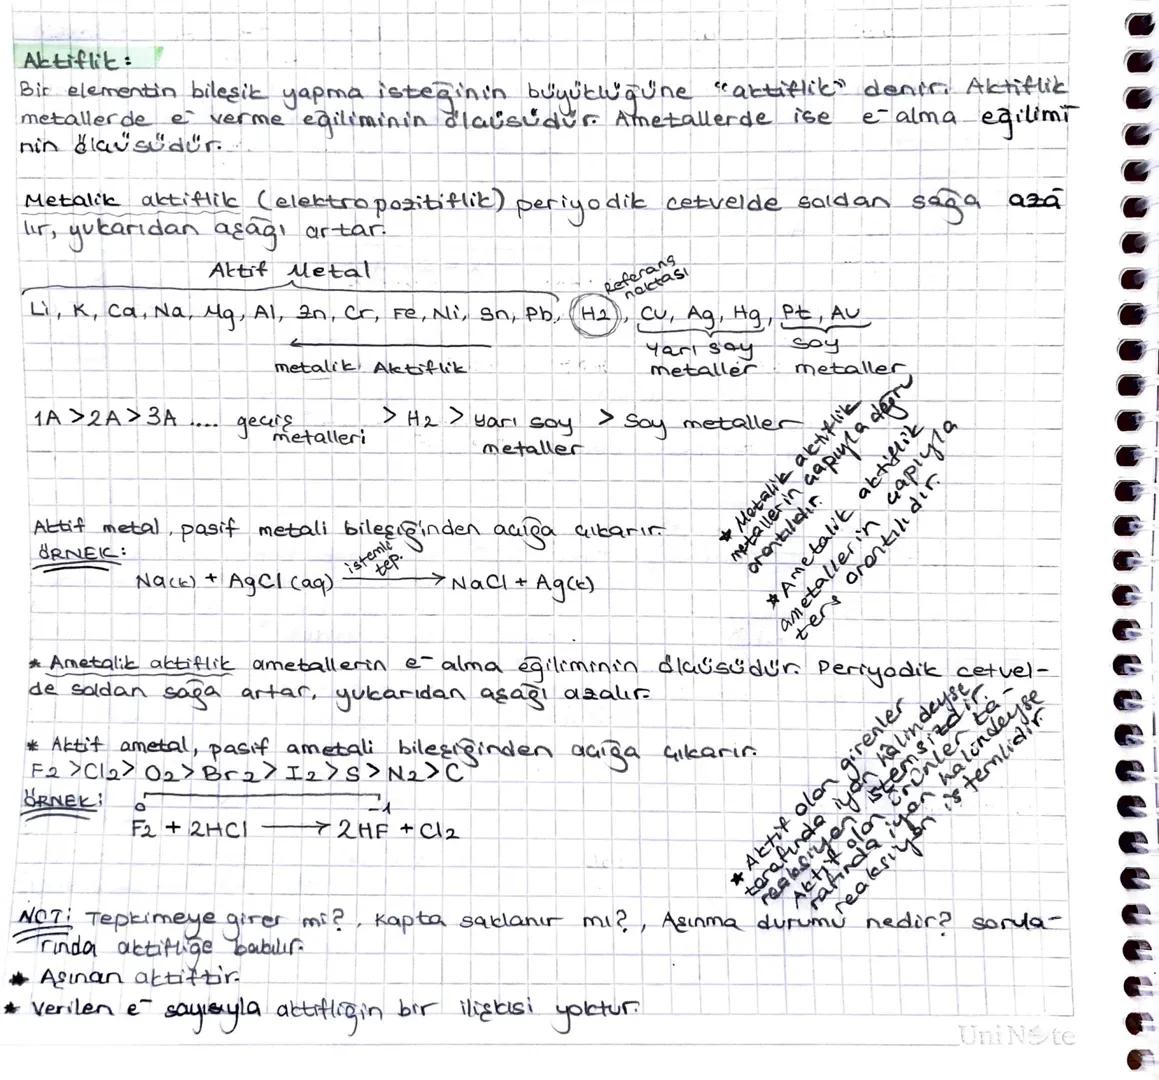 Aktiflik:
Bir elementin bileşik yapma isteğinin büyüklüğüne "aktiflik" denir. Aktiflik
metallerde e⁻ verme eğiliminin ölçüsüdür. Ametallerde ise e⁻ alma eğilimi
nin ölçüsüdür.
Metalik aktiflik (elektropozitiflik) periyodik cetvelde soldan sağa aza
lır, yukarıdan aşağı artar.
Aktif Metal
Referans
noktası
Li, K, Ca, Na, Mg, Al, Zn, Cr, Fe, Ni, Sn, Pb, H2, Cu, Ag, Hg, Pt, Au
yarı soy soy
metalik Aktiflik metaller metaller
1A > 2A > 3A .... geçiş > H2 > yarı soy > Soy metaller
metalleri metaller
* Metalik aktiflik
metallerin çapıyla doğru
orantılıdır.
* Ametalik aktiflik
ametallerin çapıyla
ters orantılıdır.
Aktif metal, pasif metali bileşiğinden açığa çıkarır.
ÖRNEK:
istemli
tep.
Na(k) + AgCl (aq) → NaCl + Ag(k)
* Ametalik aktiflik ametallerin e⁻ alma eğiliminin ölçüsüdür. Periyodik cetvel-
de soldan sağa artar, yukarıdan aşağı azalır.
* Aktif ametal, pasif ametali bileşiğinden açığa çıkarır.
F2 > Cl2 > O2 > Br2 > I2 > S > N2 > C
ÖRNEK:
0 -1
F2 + 2HCl → 2HF + Cl2
* Aktif olan girenler
tarafında iyon halindeyse
reaksiyon istemsizdir.
Aktif olan ürünler ta-
rafında iyon halindeyse
reaksiyon istemlidir.
NOT: Tepkimeye girer mi?, Kapta saklanır mı?, Aşınma durumu nedir? sorula-
rında aktifliğe bakılır.
* Aşınan aktiftir.
* Verilen e⁻ sayısıyla aktifliğin bir ilişkisi yoktur.
UniNote